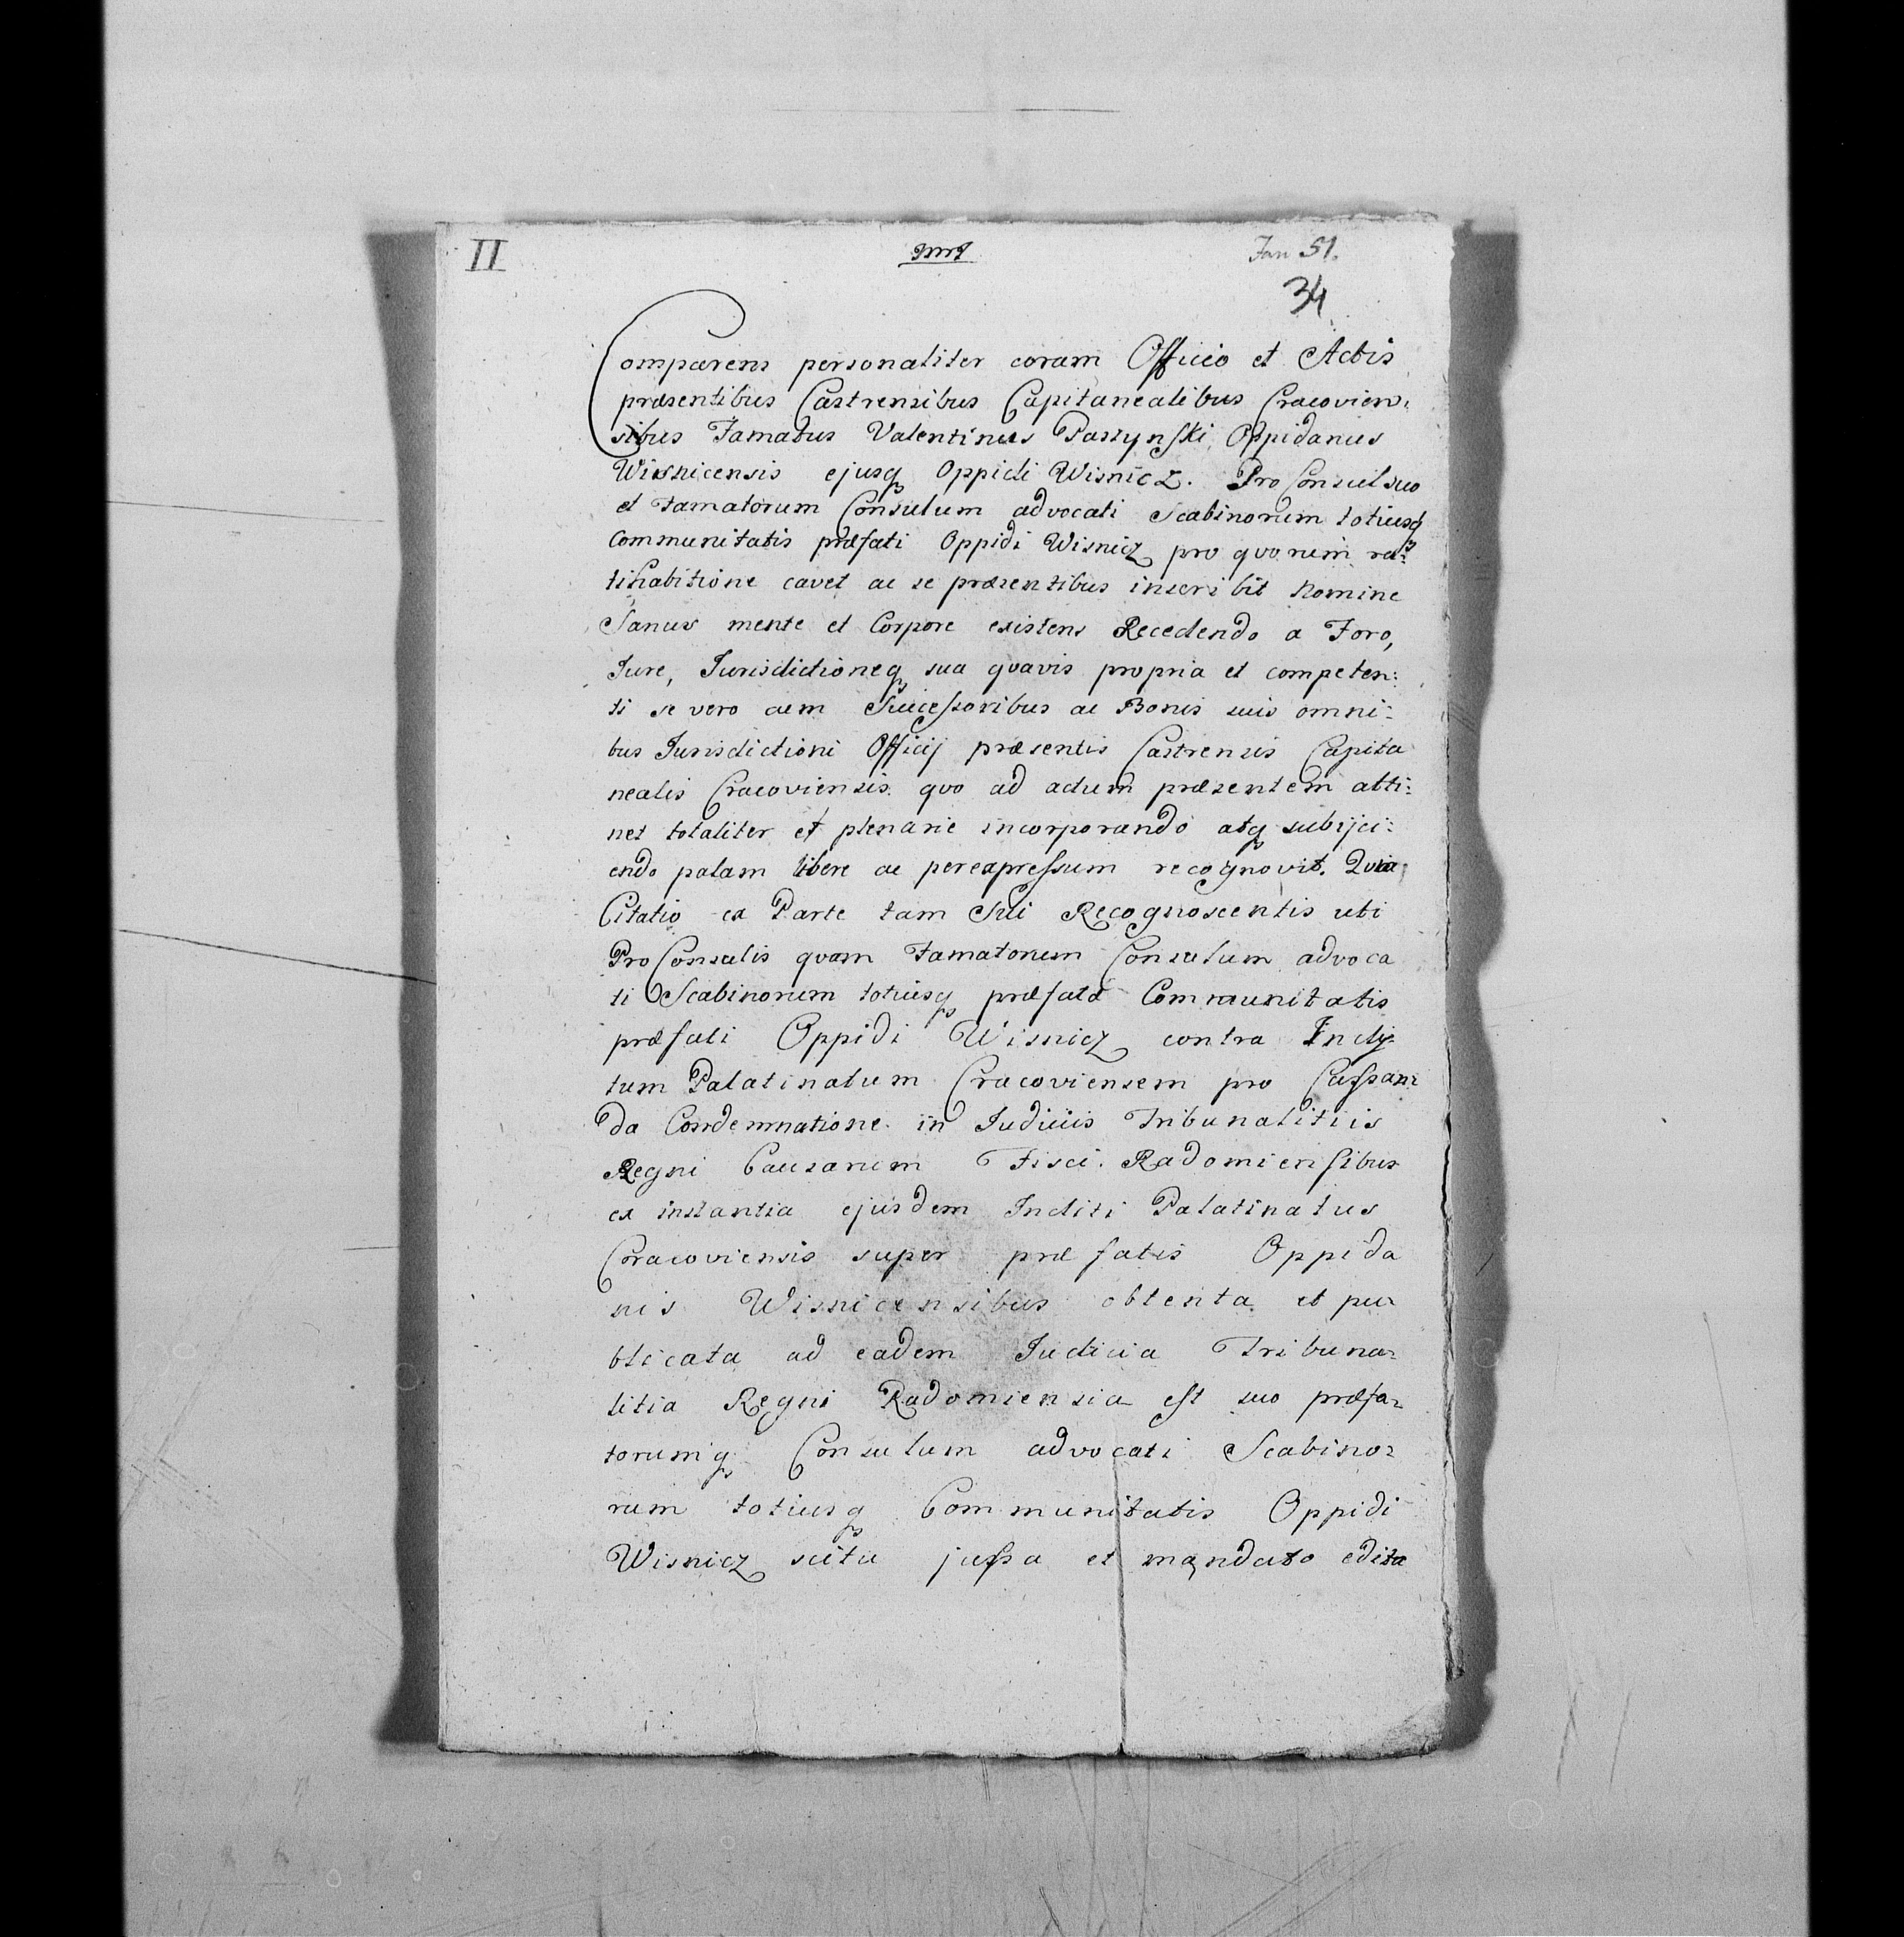 II
Jan 51.
34
Comparens personaliter coram Officio et Actis
præsentibus Castrensibus Capitanealibus Cracovien:
sibus Famatus Valentinus Paszynski Oppidanus
Wisnicensis ejusq Oppidi Wisnicz. Pro Consul suo
et Famatorum Consulum advocati Scabinorum totiusq
Communitatis præfati Oppidi Wisnicz pro quorum ra:
tihabitione cavet ac se præsentibus inscribit Nomine
Sanus mente et Corpore existens Recedendo a Foro,
Jure, Jurisdictioneq sua quavis propria et competen:
ti se vero cum Successoribus ac Bonis suis omni:
bus Jurisdictioni Officij præsentis Castrensis Capita
nealis Cracoviensis quo ad actum præsentem atti:
net totaliter et plenarie incorporando atq subijci:
endo palam libere ac per expressum recognovit. Quia
Citatio ex Parte tam Sui Recognoscentis uti
Pro Consulis quam Famatorum Consulum advoca
ti Scabinorum totiusq præfatæ Communitatis
præfati Oppidi Wisnicz contra Incly:
tum Palatinatum Cracoviensem pro Cassan:
da Condemnatione in Judiciis Tribunalitiis
Regni Causarum Fisci Radomiensibus
ex instantia ejusdem Incliti Palatinatus
Cracoviensis super præfatis Oppida
nis Wisnicensibus obtenta et pu
blicata ad eadem Judicia Tribuna:
litia Regni Radomiensia est suo præfa:
torumq Consulum advocati Scabino:
rum totiusq Communitatis Oppidi
Wisnicz scitu jussa et mandato edita